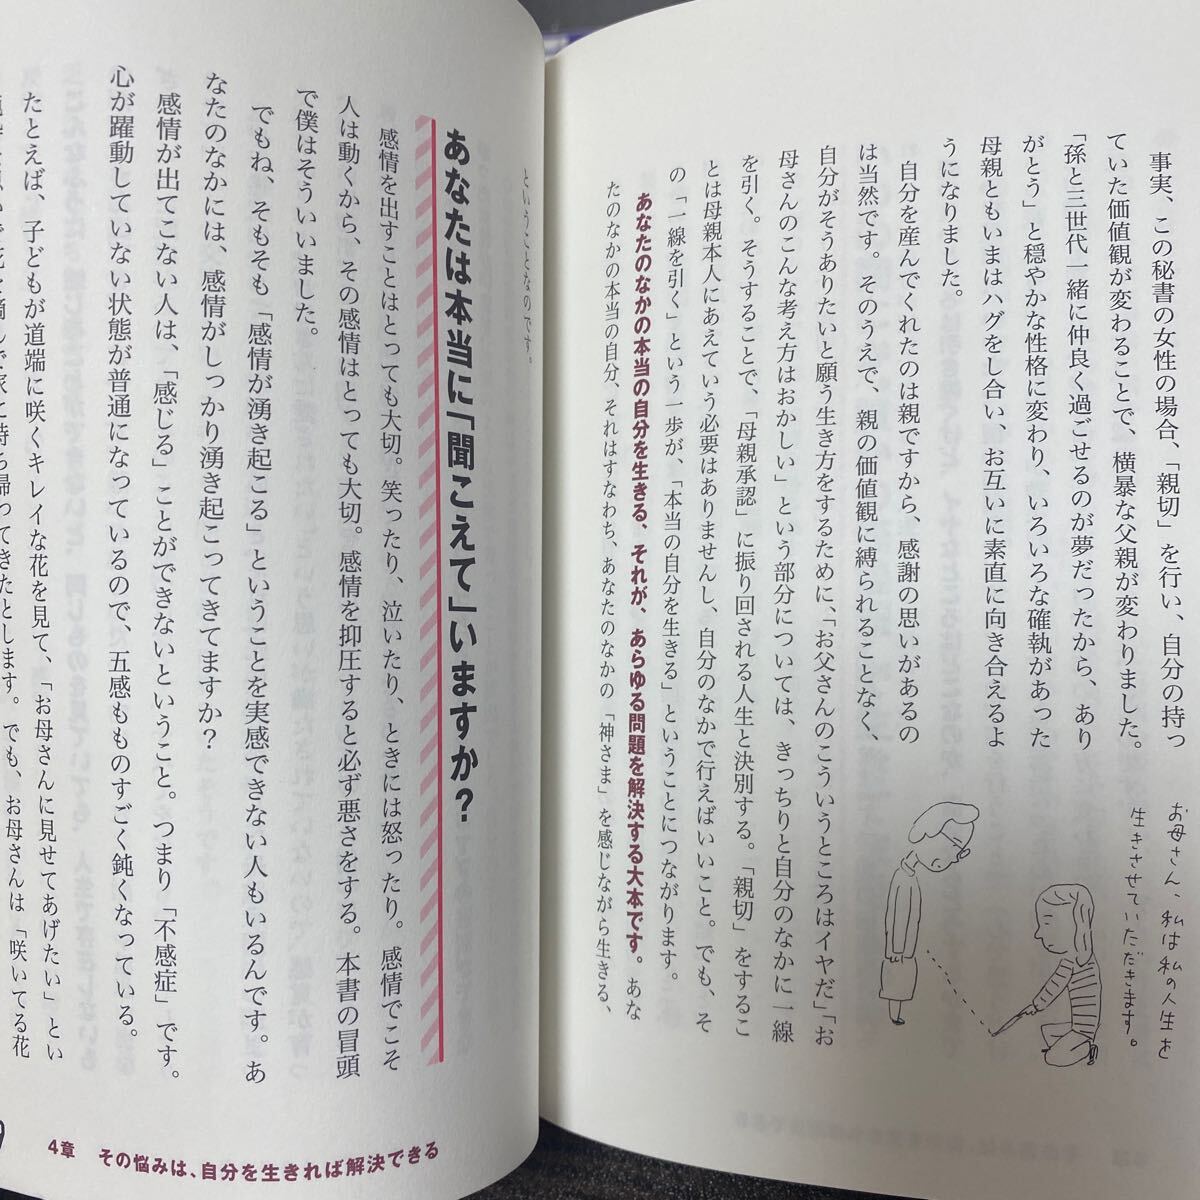 事実、この秘書の女性の場合、「親切」を行い、自分の持っ
ていた価値観が変わることで、横暴な父親が変わりました。
「孫と三世代一緒に仲良く過ごせるのが夢だったから、あり
がとう」と穏やかな性格に変わり、いろいろな確執があった
母親ともいまはハグをし合い、お互いに素直に向き合えるよ
うになりました。
自分を産んでくれたのは親ですから、感謝の思いがあるの
は当然です。そのうえで、親の価値観に縛られることなく、
自分がそうありたいと願う生き方をするために、「お父さんのこういうところはイヤだ」「お
母さんのこんな考え方はおかしい」という部分については、きっちりと自分のなかに一線
を引く。そうすることで、「母親承認」に振り回される人生と決別する。「親切」をするこ
とは母親本人にあえていう必要はありませんし、自分のなかで行えばいいこと。でも、そ
の「一線を引く」という一歩が、「本当の自分を生きる」ということにつながります。
あなたのなかの本当の自分を生きる、それが、あらゆる問題を解決する大本です。あな
たのなかの本当の自分、それはすなわち、あなたのなかの「神さま」を感じながら生きる、
お母さん、私は私の人生を
生きさせていただきます。
ということなのです。
あなたは本当に「聞こえて」いますか？
感情を出すことはとっても大切。笑ったり、泣いたり、ときには怒ったり。感情でこそ
人は動くから、その感情はとっても大切。感情を抑圧すると必ず悪さをする。本書の冒頭
で僕はそういいました。
でもね、そもそも「感情が湧き起こる」ということを実感できない人もいるんです。あ
なたのなかには、感情がしっかり湧き起こってきてますか？
感情が出てこない人は、「感じる」ことができないということ。つまり「不感症」です。
心が躍動していない状態が普通になっているので、五感もものすごく鈍くなっている。
たとえば、子どもが道端に咲くキレイな花を見て、「お母さんに見せてあげたい」とい
持ち帰ってきたとします。でも、お母さんは「咲いてる花
4章 その悩みは、自分を生きれば解決できる